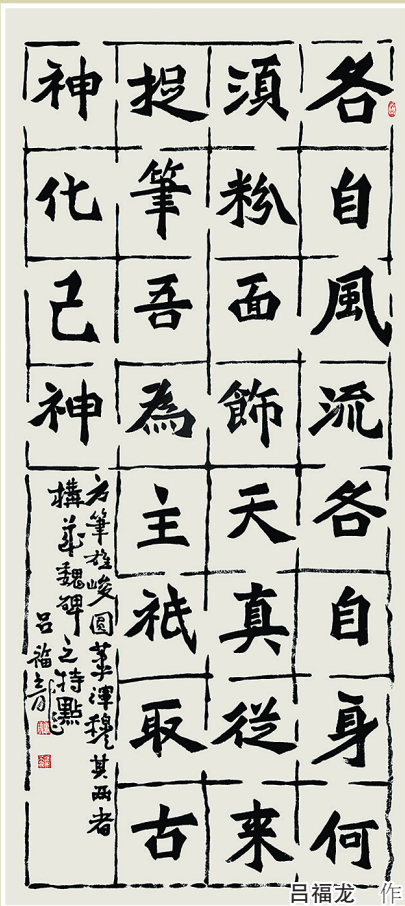 各自風流各自身何
須粉面飾天真從来
捉筆吾為主祇取古
神化己神
方筆雄峻圓筆渾穆其兩者
構成魏碑之特點
呂福龍
吕福龙 作